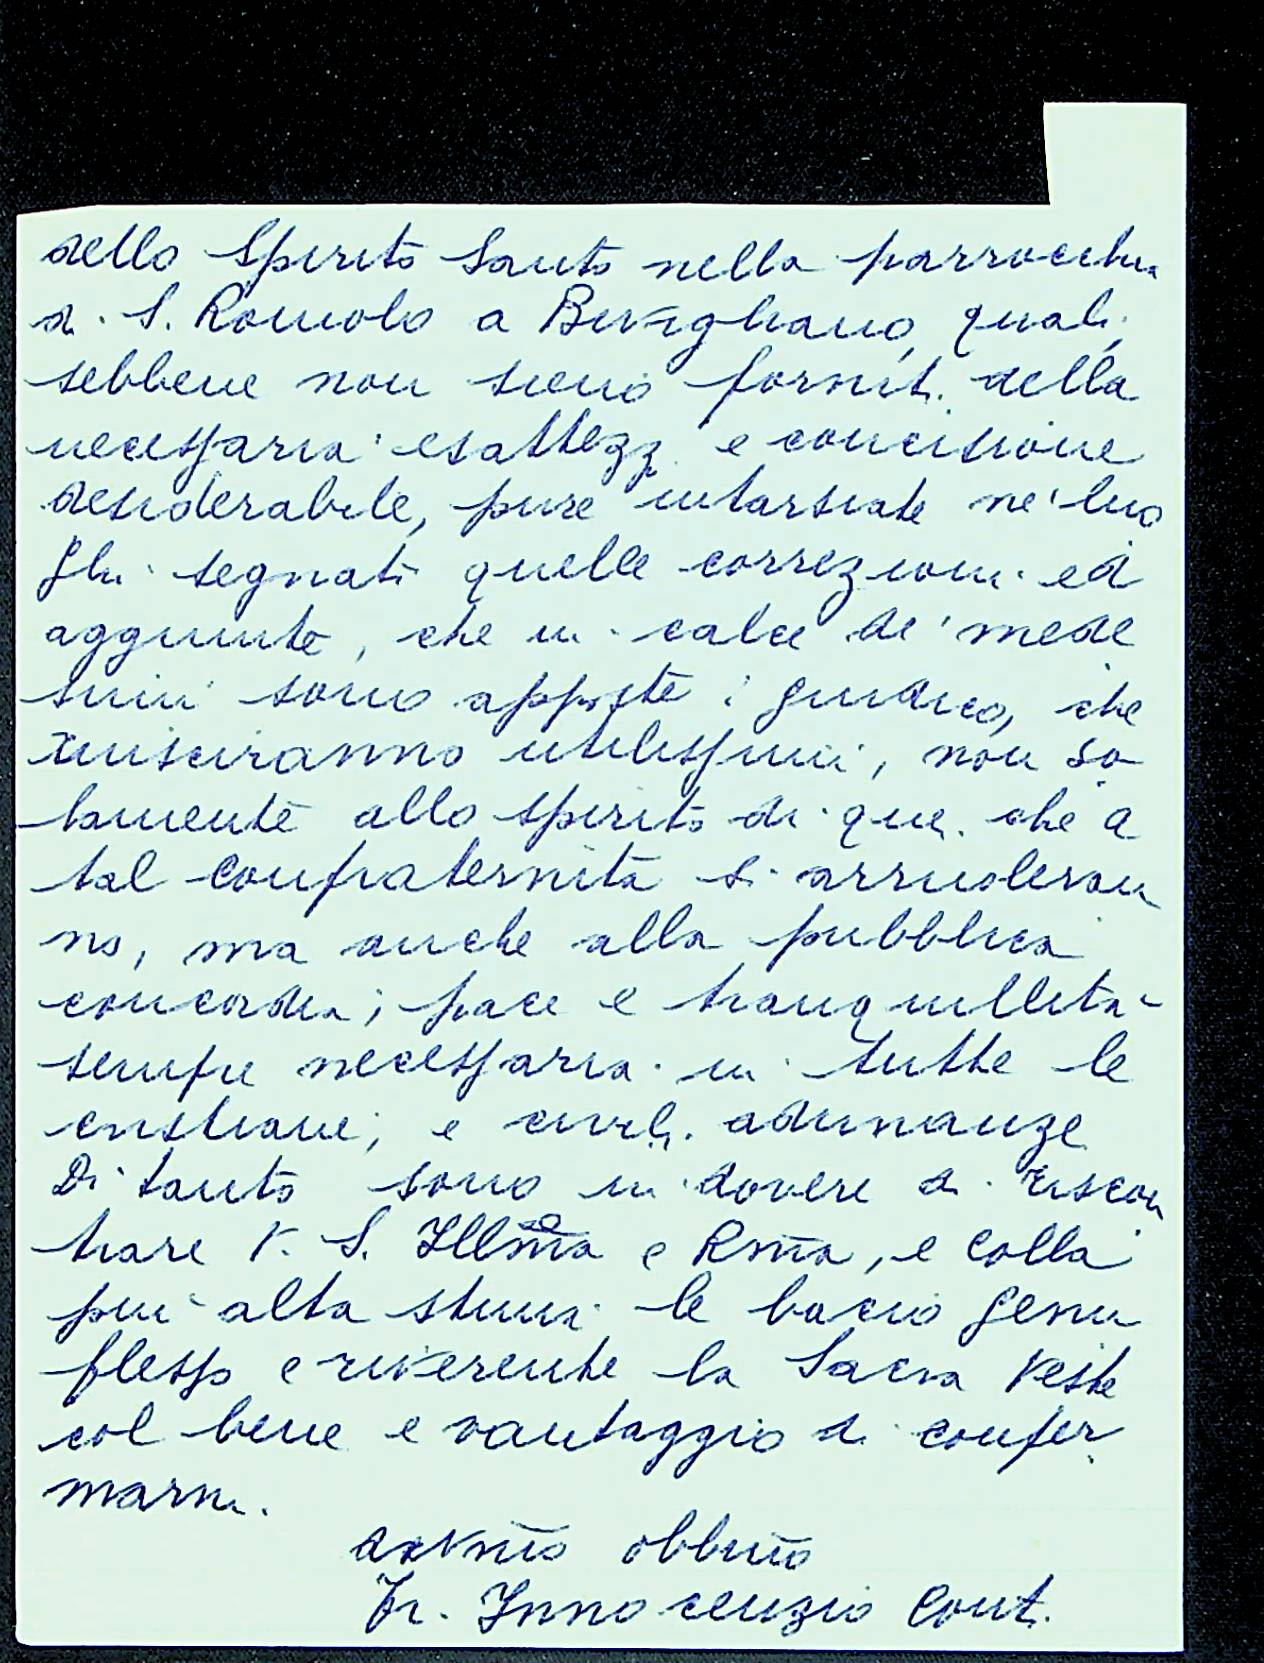 dello Spirito Santo nella parrocchia
di S. Romolo a Bivigliano, quali,
sebbene non sieno forniti della
necessaria esattezza e concisione
desiderabile, pure intarsiate ne' luo
ghi segnati quelle correzioni ed
aggiunte, che in calce de' mede
simi sono apposte; giudico, che
riusciranno utilissimi, non so
lamente allo spirito di quei che a
tal confraternita si arruoleran
no, ma anche alla pubblica
concordia, pace e tranquillità
sempre necessaria in tutte le
cristiane, e civili adunanze
Di tanto sono in dovere di riscon
trare V. S. Illma e Rma, e colla
più alta stima le bacio genu
flesso e riverente la Sacra Veste
col bene e vantaggio di confer
marmi.
obbmo
Fr. Innocenzio Conti.